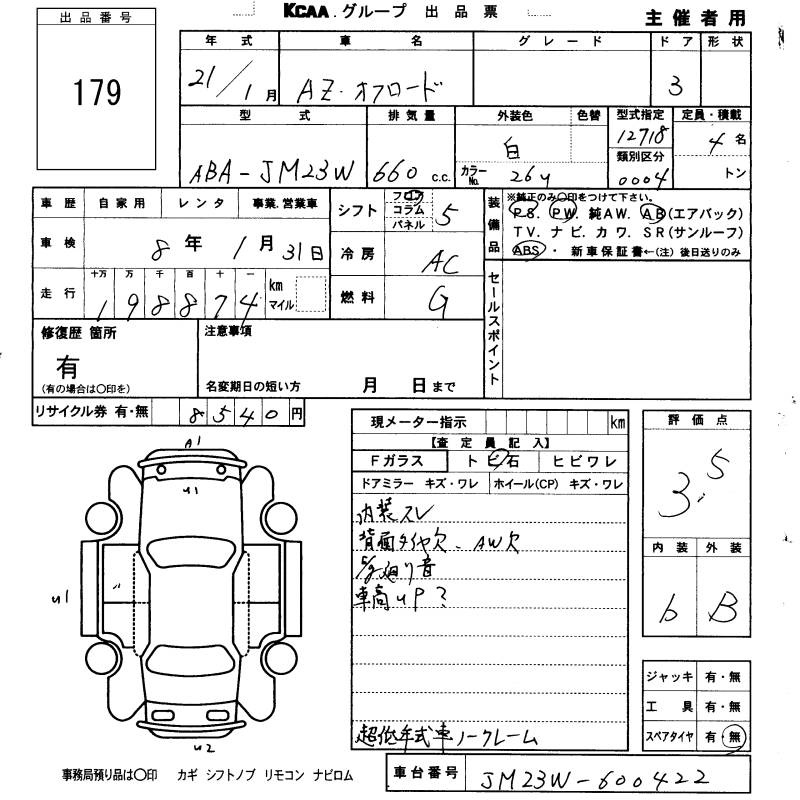 KCAA.グループ 出品票
主催者用
出品番号
179
年式 車名 グレード ドア 形状
21/1月 AZ・オフロード 3
型式 排気量 外装色 色替 型式指定 定員・積載
ABA-JM23W 660 c.c. 白 カラーNo. 26U 12718 4名
類別区分 0004 トン
車歴 自家用 レンタ 事業.営業車
車検 8年 1月 31日
走行 十万 万 千 百 十 一 km マイル
198874
シフト フロア コラム パネル 5
冷房 AC
燃料 G
装備品
※純正のみ○印をつけて下さい。
P.S. PW. 純AW. AB(エアバック)
TV. ナビ. カワ. SR(サンルーフ)
ABS・ 新車保証書←(注)後日送りのみ
セールスポイント
修復歴 箇所
有
(有の場合は○印を)
注意事項
名変期日の短い方 月 日まで
リサイクル券 有・無 8540円
現メーター指示 km
【査定員記入】
Fガラス トビ石 ヒビワレ
ドアミラー キズ・ワレ ホイール(CP) キズ・ワレ
内装スレ
背面タイヤ欠、AW欠
廻り音
車高UP?
超低年式車ノークレーム
評価点
3.5
内装 外装
b B
ジャッキ 有・無
工具 有・無
スペアタイヤ 有・無
A1
U1
U1
U2
事務局預り品は○印 カギ シフトノブ リモコン ナビロム
車台番号 JM23W-600422